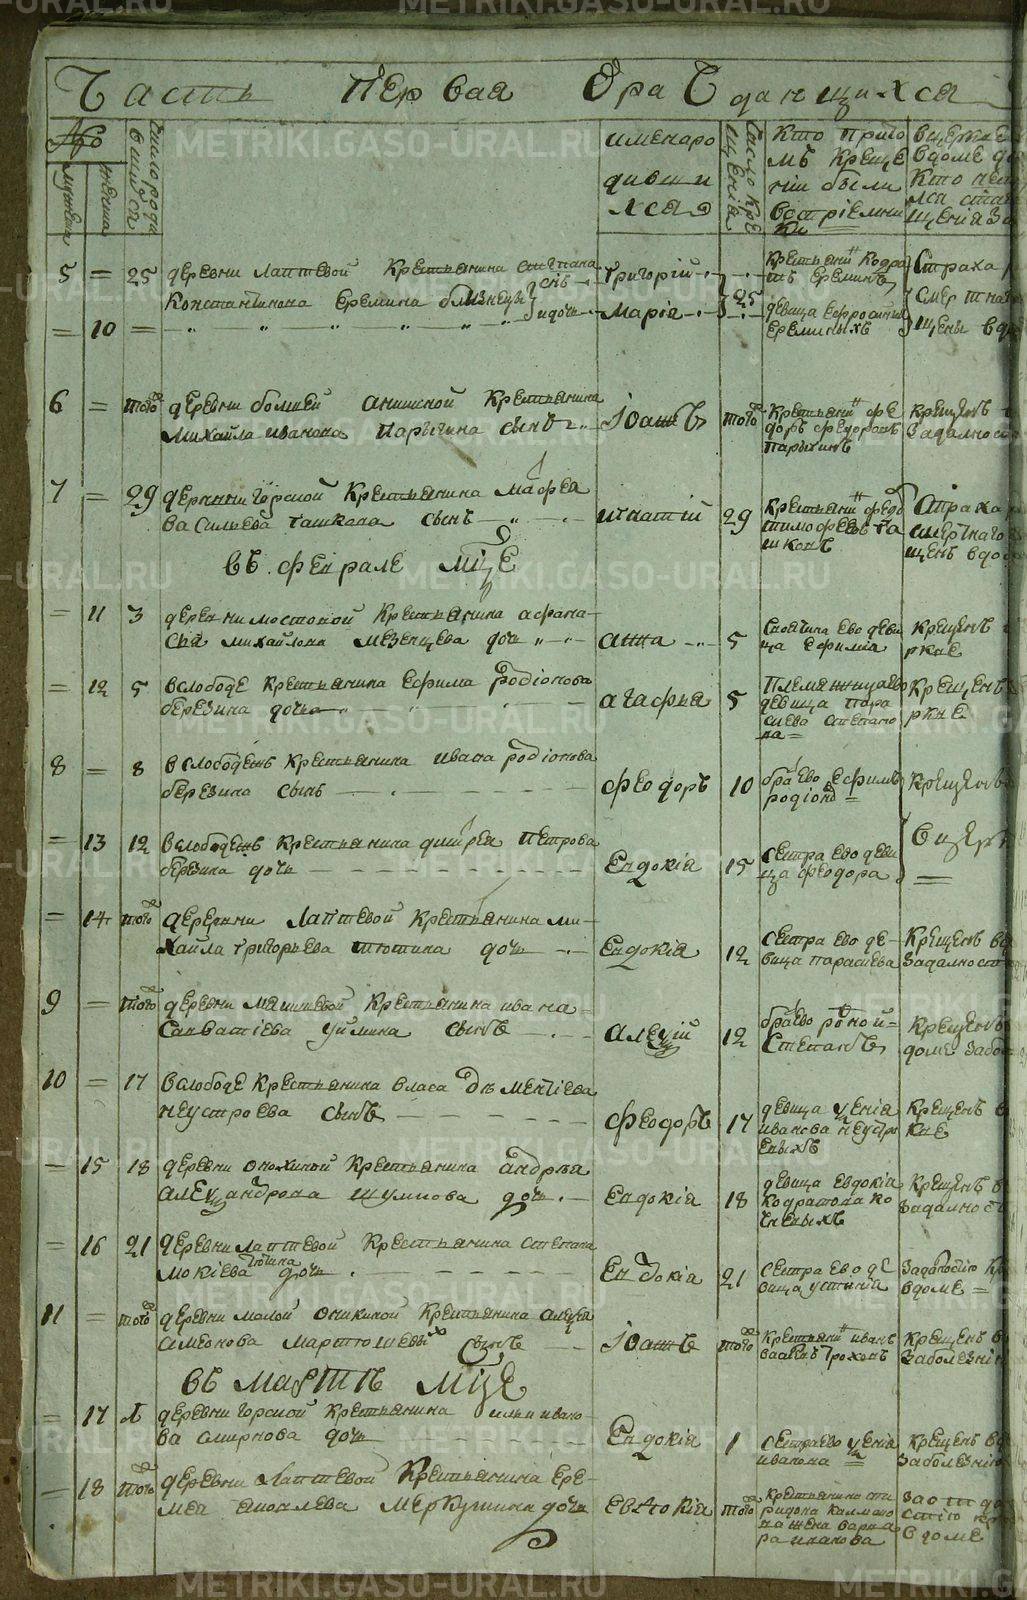 Часть Первая О раЧдающихся
№
мужеска
женска
число роди
вшийся
имена ро
дивши
хся
число кре
щенiя
кто при
мъ креще
нiи были
воспрiемни
ки
5 = 25 деревни лаптевой крестьянина степана
Константинова Еремина близнецы сынъ
и дочь
григорiй
марiя
25
Крестьянинъ Кодра
тъ Ереминъ
девица Ефросинья
Ереминыхъ
Страха
смертнаго
щены вдо
= 10 =
6 = того деревни большей аникиной крестьянина
михайла иванова Парыгина сынъ
Iоаннъ
того
Крестьянинъ фе
доръ федоровъ
Парыгинъ
крещенъ
за дальнос
7 = 29 деревни горской крестьянина матфеа
васильева ташкана сынъ
игнатiй
29
Крестьянинъ федо
тимофеевъ та
шканъ
Страха
смертнаго
щенъ вдо
въ феврале мцѣ
= 11 3 деревни мостовой крестьянина афана
сья михайлова мезенцева дочь
анна
5
своячина ево деви
ца Ефимiа
крещенъ
ркве
= 12 5 вслободе крестьянина Ефима родiонова
березина дочь
агафья
5
Племянница ево
девица пара
скева степано
ва
крещенъ
ркве
8 = 8 вслободѣ крестьянина ивана родiонова
березина сынъ
феодоръ
10
братъ ево Ефимъ
родiоно
крещенъ
= 13 12 вслободѣ крестьянина дмитрея петрова
березина дочь
Евдокiа
15
сестра ево деви
ца феодора
в церк
= 14 того деревни Лаптевой крестьянина ми
хайла григорьева тютина дочь
Евдокiа
12
сестра ево де
вица параскева
Крещенъ вд
за дальност
9 = того деревни мешневой крестьянина ивана
савватiева уймина сынъ
алеѯiй
12
братъ ево родной
Степанъ
крещенъ
доме забол
10 = 17 вслободе крестьянина власа дементiева
неустроева сынъ
феодоръ
17
девица ѯенiа
иванова неустро
евыхъ
крещенъ в
кве
= 15 18 деревни онохиной крестьянина андрѣя
алеѯандрова шумкова дочь
Евдокiа
18
девица Евдокiа
кодратова ко
чневыхъ
крещенъ в
за дальнос
= 16 21 деревни лаптевой крестьянина степана
мокiева тютина дочь
Евдокiа
21
сестра ево де
вица устинiа
за далностiю кр
вдоме
11 = того деревни малой оникиной крестьянина алеѯеа
семенова мартюшевыхъ сынъ
Iоаннъ
того
крестьянинъ иванъ
васильевъ трохонъ
крещенъ в
заболезнiю
въ мартѣ мцѣ
= 17 1 деревни горской крестьянина ильи ивано
ва смирнова дочь
Евдокiа
1
сестра ево ѯенiа
иванова
крещенъ вд
заболезнiю
= 18 того деревни лаптевой крестьянина ере
меа яковлева меркушина дочь
Евдокiа
того
крестьянина спи
ридона калмако
ва жена варва
ра иванова
за отда
стiю кр
вдоме
METRIKI.GASO-URAL.RU